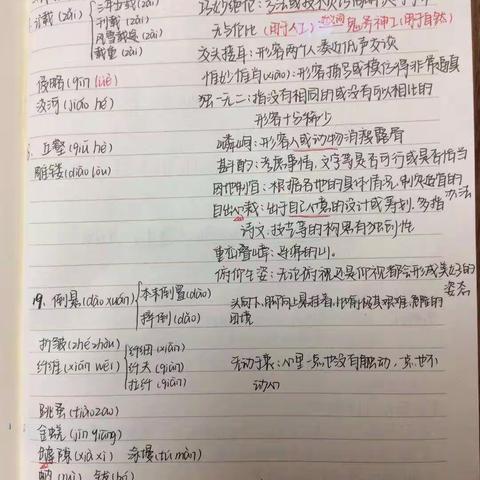 记载(zǎi) 三年五载(zǎi)
刊载(zǎi)
风雪载途(zài)
载重(zài)
无与伦比(用于人工) 鬼斧神工(用于自然)
交头接耳:形容两个人凑近低声交谈
侵略(qīn lüè) 惟妙惟肖(xiào):形容描写或模仿得非常逼真
浇河(jiāo hé) 独一无二:指没有相同的或没有可以相比的
形容十分稀少
丘壑(qiū hè) 嶙峋:形容人或动物消瘦露骨
雕镂(diāo lòu) 斟酌:考虑事情,文字等是否可行或是否恰当
因地制宜:根据各地的具体情况,制定适宜的办法
自出心裁:出于自己心意的设计或筹划,多指
诗文、技艺等的构思有独到性
重峦叠嶂:
俯仰生姿:无论俯视还是仰视都会形成美好的姿态
19. 倒悬(dào xuán) 本末倒置(dào)
摔倒(dǎo)
头向下,脚向上悬挂着,比喻极其艰难、危险的
困境
折皱(zhé zhòu) 纤细(xiān)
纤维(xiān wéi) 纤夫(qiàn)
拉纤(qiàn)
无动于衷:心里一点也没有触动,一点也不
动心
跳蚤(tiào zao)
金蜣(jīn qiāng)
罅隙(xià xì) 涂墁(tú màn)
蚋(ruì) 钹(bó)